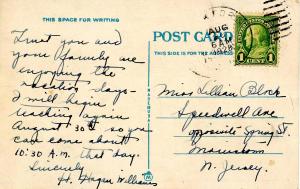 THIS SPACE FOR WRITING
Trust you and
your family are
enjoying the
vacation days -
I will begin
teaching again
August 30th so you
can come about
10:30 A.M. that day.
Sincerely
H. Hagen Williams
POST CARD
THIS SIDE IS FOR THE ADDRESS
AUG
1 CENT 1
Miss Lillian Block
Speedwell Ave
opposite Spring St.
Morristown
N. Jersey.